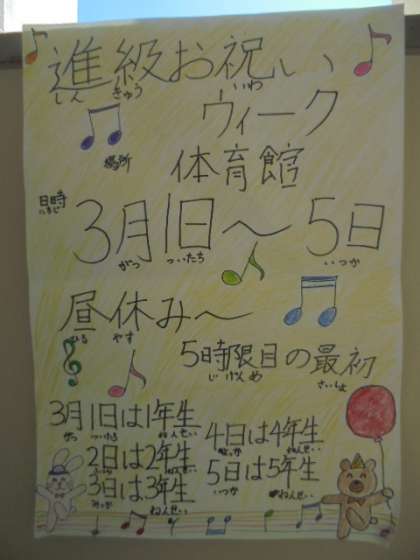 進級お祝い
しんきゅう いわ
ウィーク
場所 体育館
日時 3月1日～5日
にちじ がつ ついたち いつか
昼休み～
ひる やす
5時限目の最初
じげんめ さいしょ
3月1日は1年生
がつ ついたち ねんせい
2日は2年生
ねんせい
3日は3年生
みっか ねんせい
4日は4年生
よっか ねんせい
5日は5年生
いつか ねんせい